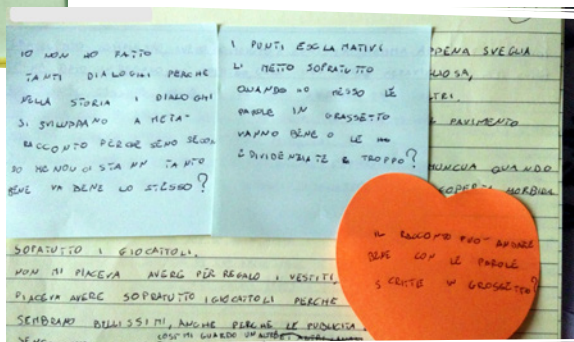 IO NON HO FATTO
TANTI DIALOGHI PERCHE
NELLA STORIA I DIALOGHI
SI SVILUPPANO A META'
RACCONTO PERCHE SENO SECON
DO ME NON CI STANN TANTO
BENE VA BENE LO STESSO?
I PUNTI ESCLAMATIVI
LI METTO SOPRATUTTO
QUANDO HO MESSO LE
PAROLE IN GRASSETTO
VANNO BENE O LE HO
EDIVIDENZIATE E TROPPO?
APPENA SVEGLIA
PAVIMENTO
QUANDO
COPERTA MORBIDA
IL RACCONTO PUO' ANDARE
BENE CON LE PAROLE
SCRITTE IN GROSSETTO?
SOPATUTTO I GIOCATTOLI.
NON MI PIACEVA AVERE PER REGALO I VESTITI
PIACEVA AVERE SOPRATUTTO I GIOCATTOLI PERCHE
SEMBRANO BELLISSIMI, ANCHE PERCHE LE PUBLICITA
COSÌ MI GUARDO UN